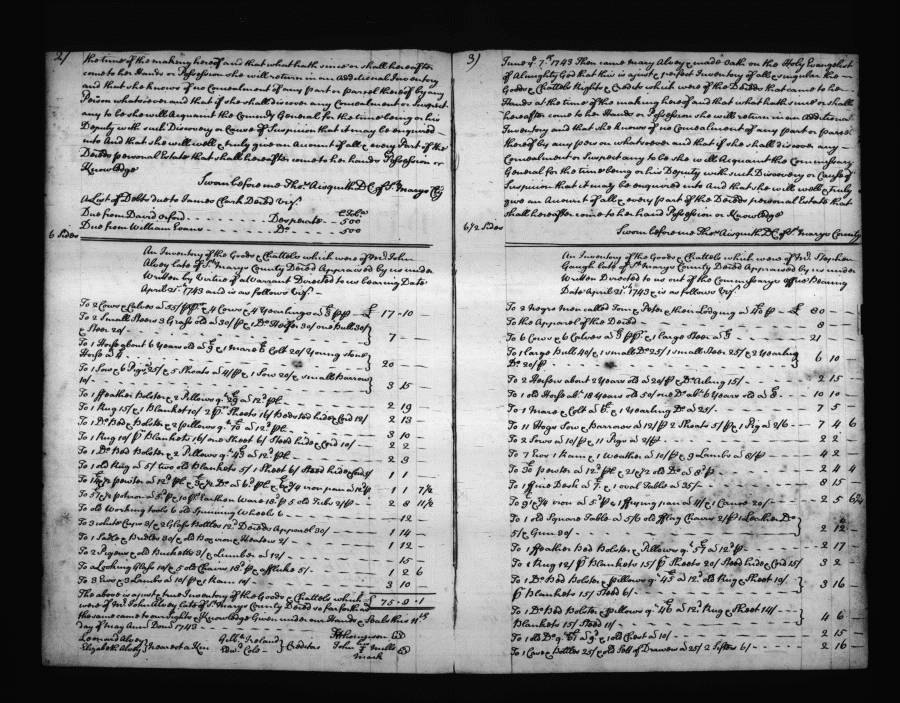 2)
the time of the making hereof and that what hath since or shall hereafter
come to her Hands or Possession she will return in an Additional Inventory
and that she knows of no Concealment of any part or parcel thereof by any
Person whatsoever and that if she shall discover any Concealment or Suspect
any to be she will Acquaint the Comissry General for the time being or his
Deputy with such Discovery or Cause of Suspicion that it may be enquired
into And that she will well & truly give an Amount of all & every Part of the
Deceds personal Estate that shall hereafter come to her hands Possession or
Knowledge
Sworn before me Thos. Aisquith DC of St. Marys Cty
A List of Debts due to Inner Clark Deced Vizt.
Due from David Desperate 500
Due from William Do. 500
6 Sides
An Inventory of the Goods & Chattels which were of Mr. John
Alvey late of St. Marys County Deced Appraised by us under
Written by Virtue of a Warrant Directed to us bearing Date
April 25th 1743 and is as follows Vizt.
To 2 Cows & Calves a 55/ 4 Cows & 4 Yearlings £ 17 - 10
To 2 Small Steers 3 Grass old a 30/ Heifers 30/ one bull 30/
& Steer 20/ 7
To 1 Horse about 6 Years old 1 mare & Colt 20/ Young stone
Horse a 4 20
To 1 Sow & 6 Pigs 25/ & 5 Shoats a 4/ & 1 Sow 20/ & small Barrow
10/ 3 15
To 1 ffeather Bolster 2 Pillows 2 19
To 1 Rug 15/ 1 Blanket 10/ 2 Sheets 16/ Bedsted hide & Cord 12/ 2 13
To 1 Do. Bed Bolster & 2 pillows 3 10
To 1 Rug 10/ Blankets 16/ one Sheet 6/ Sted hide & Cord 10/ 2 2
To 1 Do. Bed Bolster & 2 Pillows 2 3
To 1 old Rug a 5/ two old Blankets 5/ 1 Sheet 6/ Sted hide Cord 1 1
pewter a 12d iron pan a 1 1 7½
Earthen Ware 18d 5 old Tubs 2 8 11½
To old Working tools & old Spinning Wheels 6 12
To 3 white Cups 3/ 2 Glass Bottles 12d Deceds Apparel 30/ 1 14
To 1 Sadle & Bridle 30/ 1 12
To 2 Piggens & old Bucketts 3/ & Lumber a 12/ 15
To a Looking Glass 10/ & 5 old Chairs 1 2 6
To 3 Ewes & 3 Lambs a 10/ & 1 Ram 10/ 3 10
The above is a just & true Inventory of the Goods & Chattels which £ 75 - 9 - 1
were of Mr. John Alvey late of St. Marys County Deced so far forth as
the same came to our sights & Knowledge Given under our Hands & Seals this 11th
day of May Anno Domi 1743
Leonard Alvey
Elizabeth Alvey } Nearest a Kin
Ireland
Edwd. Cole } Creditors
Thompson
John Mills
Mark
3)
June ye 7th 1743 Then came Mary Alvey & made Oath on the Holy Evangelist
of Almighty God that his is a just & perfect Inventory of all & singular the
Goods & Chattels Rights & Credits which were of the Deced that came to her
Hands at the time of the making hereof and that what hath since or shall
hereafter come to her Hands or Possession she will return in an Additional
Inventory and that she knows of no Concealment of any part or parcel
thereof by any person whatsoever and that if she shall discover any
Concealment or Suspect any to be she will Acquaint the Commissary
General for the time being or his Deputy with such Discovery or Cause of
Suspicion that it may be enquired into And that she will well & truly
give an Amount of all & every part of the Deceds personal Estate that
shall hereafter come to her hand Possession or Knowledge
Sworn before me Thos. Aisquith DC of St. Marys County
6½ Sides
An Inventory of the Goods & Chattels which were of Mr. Stephen
Gough late of St. Marys County Deced Appraised by us under
Written Directed to us out of the Commissarys office Bearing
Date April 21st 1743 & is as follows Vizt.
To 2 Negro men called Tom & Peter & their Lodging a 40 £ 80
To the Apparel of the Deced 8
To 6 Cows & 6 Calves & 1 large Steer 21
To 1 large Bull 40/ & 1 small Do. 25/ 1 small Steer 25/ & 2 Yearling
Do. 20/ 6 10
To 2 Heifers about 2 Years old a 20/ Do. Ailing 15/ 2 15
To 1 old Horse abt. 18 Years old 50/ one Do. abt. 6 Years old 10 10
To 1 Mare & Colt & 1 Yearling Do. a 25/ 7 5
To 11 Hogs Sows & Barrows a 12/ 2 Shoats 5/ & 1 Pig a 2/6 7 4 6
To 2 Sows a 10/ & 11 Pigs a 2/ 2 2
To 7 Ews 1 Ram & 1 Weather a 10/ & 9 Lambs a 8/ 4 2
pewter a 12d & 21½ old Do. a 8d 2 4 4
To 1 ffine Desk & 1 oval Table a 35/ 8 15
iron & 1 ffrying pan a 4/ & 1 Canoe 20/ 2 5 6¾
To 1 old Square Table a 5/6 old fflag Chairs 2/ 1 Leather Do.
5/ & Gun 30/ 2 12
To 1 ffeather Bed Bolster & Pillows 2 17
To 1 Rug 12/ Blankets 15/ Sheets 20/ Sted hide & Cord 15/ 3 2
To 1 Do. Bed Bolster & pillows qt. 45 a 12d old Rug & Sheet 10/
Blankets 15/ Sted 6/ 3 16
To 1 Do. Bed Bolster & pillows qt. 46 a 12d Rug & Sheet 14/
Blankets 15/ Sted 11/ 4 6
To 1 old Do. & old Chest a 10/ 2 15
To 1 Case & Bottles 25/ & old Sett of Drawers a 25/ 2 Sifters 6/ 2 16